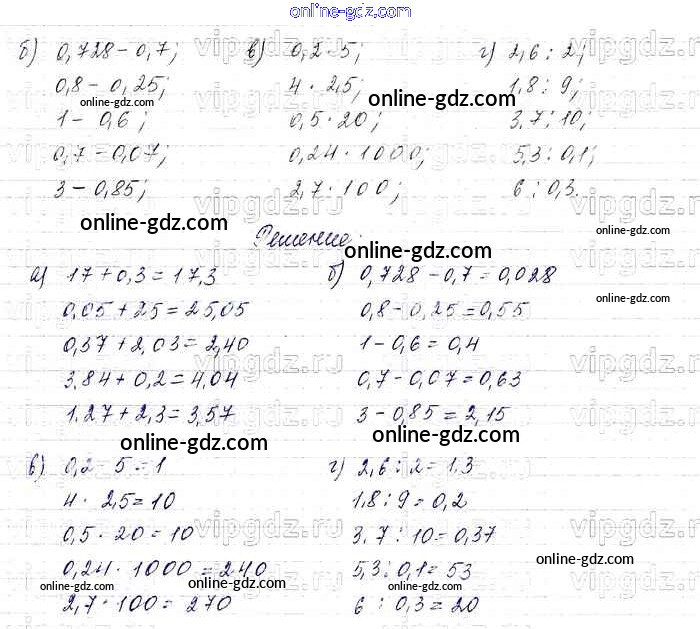 online-gdz.com
б) 0,728 - 0,7; в) 0,2 · 5; г) 2,6 : 2;
0,8 - 0,25; 4 · 2,5; 1,8 : 9;
1 - 0,6; 0,5 · 20; 3,7 : 10;
0,7 - 0,07; 0,24 · 1000; 5,3 : 0,1;
3 - 0,85; 2,7 · 100; 6 : 0,3.
Решение:
а) 17 + 0,3 = 17,3 б) 0,728 - 0,7 = 0,028
0,05 + 25 = 25,05 0,8 - 0,25 = 0,55
0,37 + 2,03 = 2,40 1 - 0,6 = 0,4
3,84 + 0,2 = 4,04 0,7 - 0,07 = 0,63
1.27 + 2,3 = 3,57 3 - 0,85 = 2,15
в) 0,2 · 5 = 1 г) 2,6 : 2 = 1.3
4 · 2,5 = 10 1,8 : 9 = 0,2
0,5 · 20 = 10 3.7 : 10 = 0,37
0,24 · 1000 = 240 5,3 : 0,1 = 53
2,7 · 100 = 270 6 : 0,3 = 20